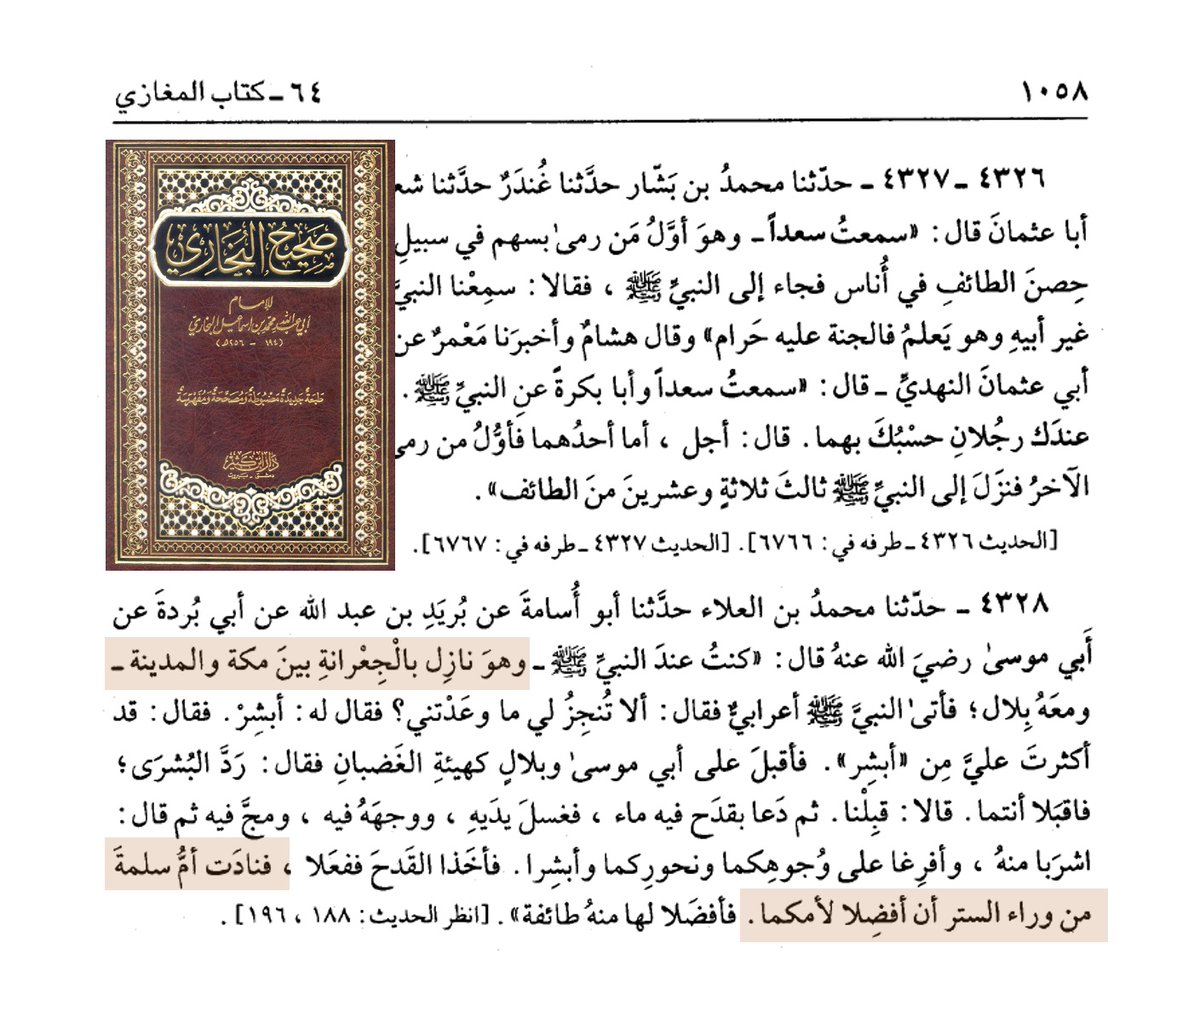 ١٠٥٨
٦٤ ـ كتاب المغازي
٤٣٢٦ ـ ٤٣٢٧ ـ حدّثنا محمدُ بن بَشّار حدَّثنا غُندَرٌ حدَّثنا شعـ
أبا عثمانَ قال: «سمعتُ سعداً ـ وهوَ أوَّلُ مَن رمىٰ بسهم في سبيلِ
حِصنَ الطائفِ في أُناس فجاء إلى النبيِّ ﷺ ، فقالا: سمِعْنا النبيَّ
غير أبيهِ وهو يَعلمُ فالجنة عليه حَرام» وقال هشامٌ وأخبرَنا مَعْمرٌ عن
أبي عثمانَ النهديِّ ـ قال: «سمعتُ سعداً وأبا بكرةً عنِ النبيِّ ﷺ .
عندَك رجُلانِ حسْبُكَ بهما. قال: أجل ، أما أحدُهما فأوُّلُ من رمى
الآخرُ فنزَلَ إلى النبيِّ ﷺ ثالثَ ثلاثةٍ وعشرينَ منَ الطائف».
[الحديث ٤٣٢٦ ـ طرفه في: ٦٧٦٦]. [الحديث ٤٣٢٧ ـ طرفه في: ٦٧٦٧].
صَحِيحُ البُخَارِيّ
للإمام
أبي عبد الله محمد بن اسماعيل البخاري
(١٩٤ - ٢٥٦هـ)
طبعة جديدة مضبوطة ومصححة ومفهرسة
دار ابن كثير
دمشق - بيروت
٤٣٢٨ ـ حدّثنا محمدُ بن العلاء حدَّثنا أبو أُسامةَ عن بُرَيَدِ بن عبد الله عن أبي بُردةَ عن
أَبي موسىٰ رضيَ الله عنهُ قال: «كنتُ عندَ النبيِّ ﷺ ـ وهوَ نازِل بالْجِعْرانةِ بينَ مكة والمدينة ـ
ومعَهُ بِلال؛ فأتىٰ النبيَّ ﷺ أعرابيٌّ فقال: ألا تُنجِزُ لي ما وعَدْتني؟ فقال له: أبشِرْ. فقال: قد
أكثرتَ عليَّ مِن «أبشِر». فأقبلَ على أبي موسىٰ وبلالٍ كهيئةِ الغَضبانِ فقال: رَدَّ البُشرَى؛
فاقبَلا أنتما. قالا: قبِلْنا. ثم دَعا بقدَح فيه ماء ، فغسلَ يدَيهِ ، ووجهَهُ فيه ، ومجَّ فيه ثم قال:
اشرَبا منهُ ، وأفرِغا على وُجوهِكما ونحورِكما وأبشِرا. فأخَذا القَدحَ ففعَلا ، فنادَت أمُّ سلمةَ
من وراء الستر أن أفضِلا لأمكما. فأفضَلا لها منهُ طائفة». [انظر الحديث: ١٨٨ ، ١٩٦].